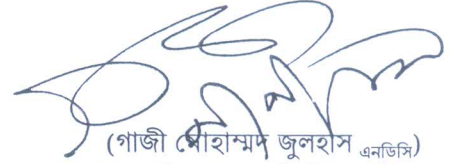 (গাজী মোহাম্মদ জুলহাস এনডিসি)